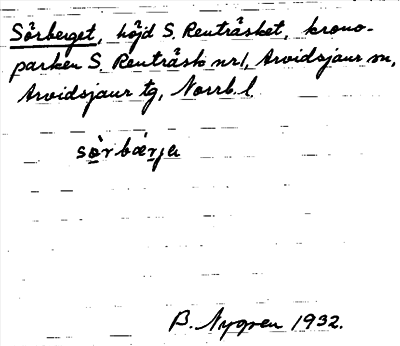 Sörberget, höjd S. Renträsket, krono-
parken S. Renträsk nr 1, Arvidsjaur sn,
Arvidsjaur tg, Norrb. l.
sörbärje
B. Nygren 1932.